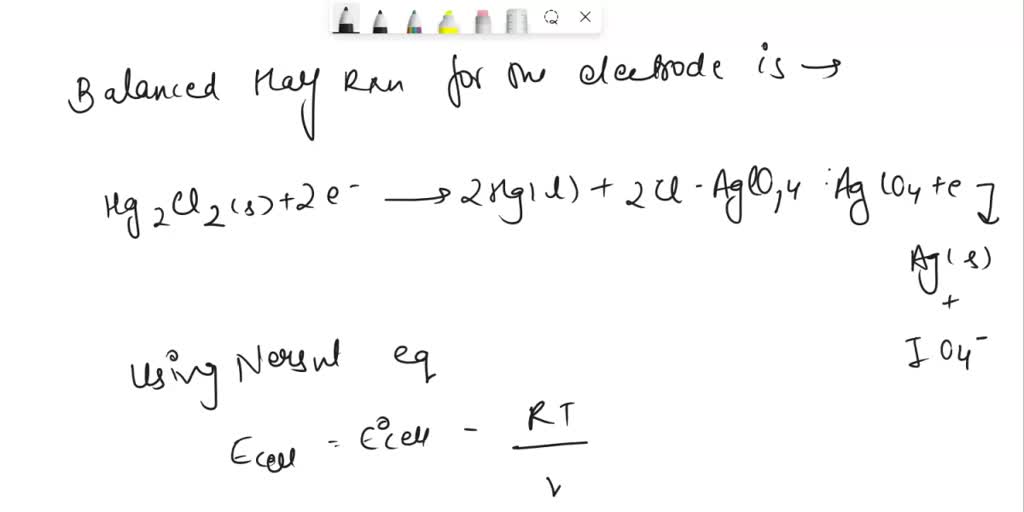 Balanced Half Rxn for the electrode is →
Hg2Cl2(s)+2e- → 2Hg(l) + 2Cl - AgIO4 : AgIO4 + e
Ag(s)
+
IO4-
Using Nersnt eq
Ecell = E°cell - RT